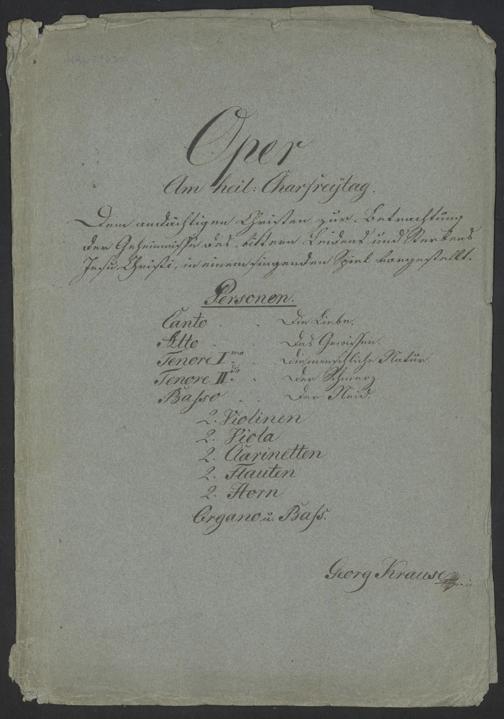 Oper
Am heil: Charfreÿtag.
Dem andächtigen Christen zur Betrachtung
der Geheimnisse des bittern Leidens und Sterbens
Jesu Christi, in einem singenden Spiel vorgestellt.
Personen.
Canto . . Die Liebe.
Alto . . Das Gewissen.
Tenore I mo . Die menschliche Natur.
Tenore II do . Der Schmerz
Basso . . Der Neid.
2. Violinen
2. Viola
2. Clarinetten
2. Flauten
2. Horn
Organo u. Baſs.
Georg Krause